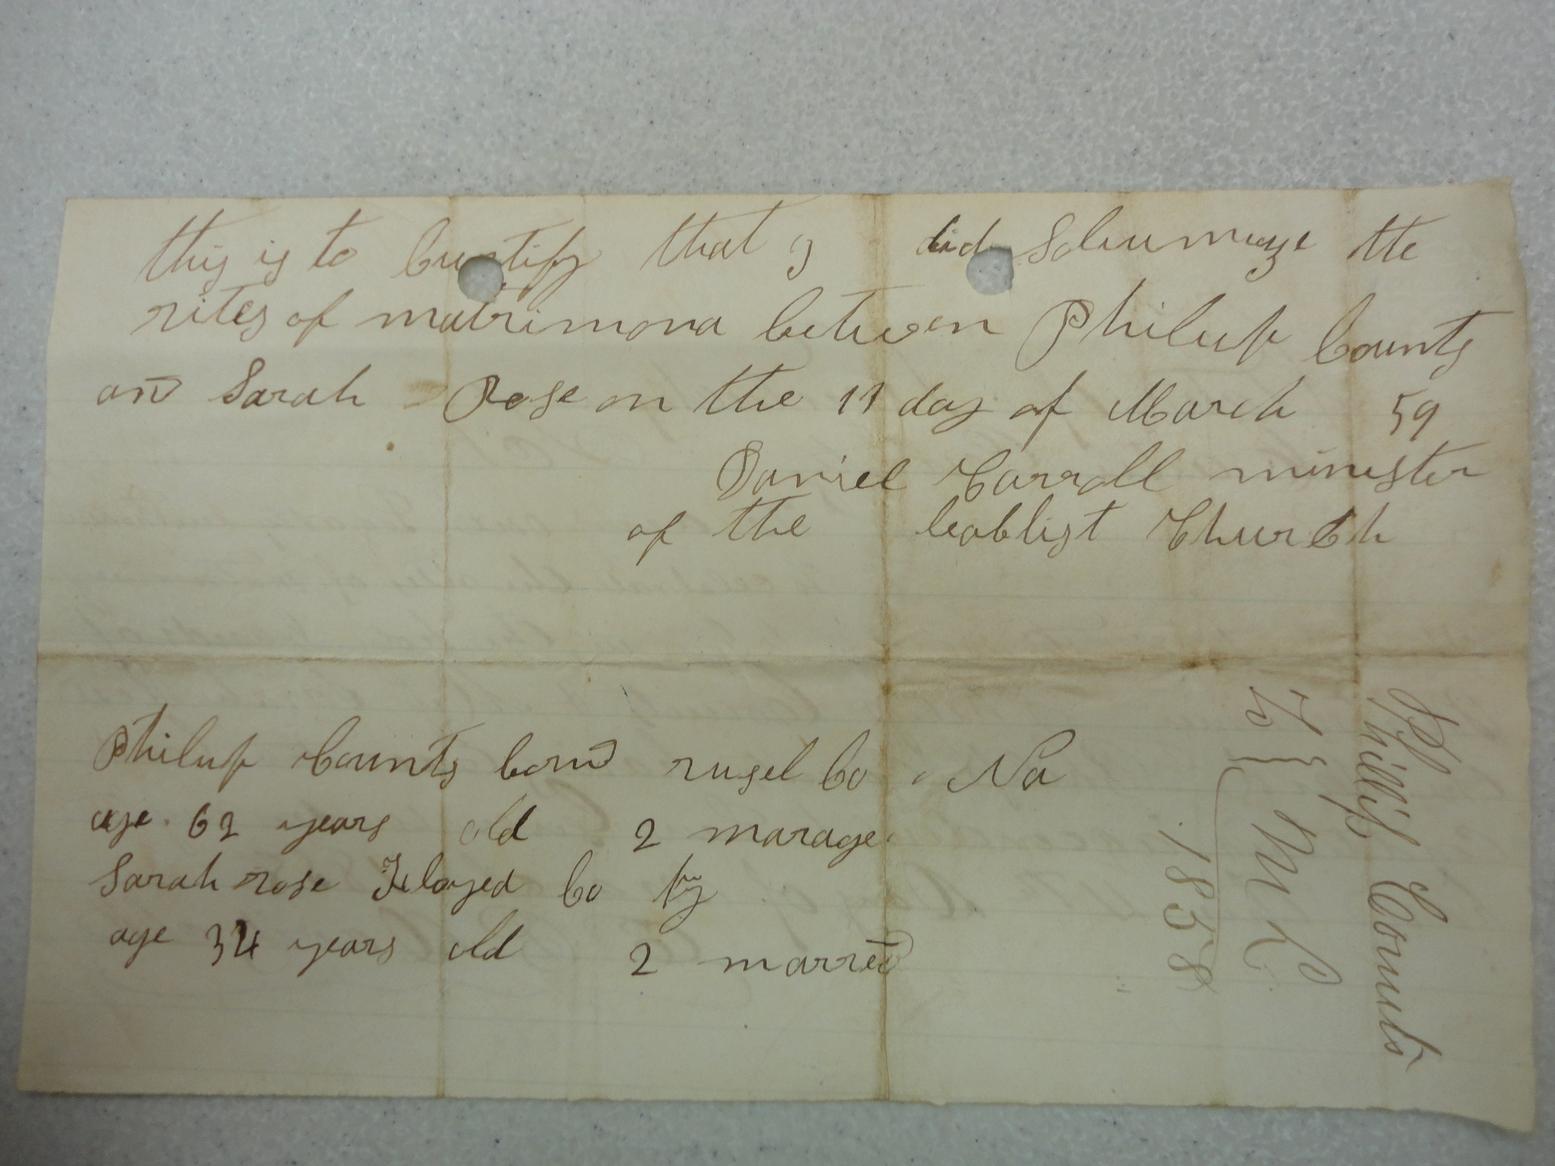 this is to Certify that I did Solumnize the
rites of matrimona between Philup Counts
and Sarah Rose on the 11 day of March 59
Daniel Carroll minister
of the babtist Church
Philup Counts born rusel Co Va
age 62 years old 2 marage
Sarah rose Floyed Co Ky
age 34 years old 2 married
Phillip Counts
To } M L
1858